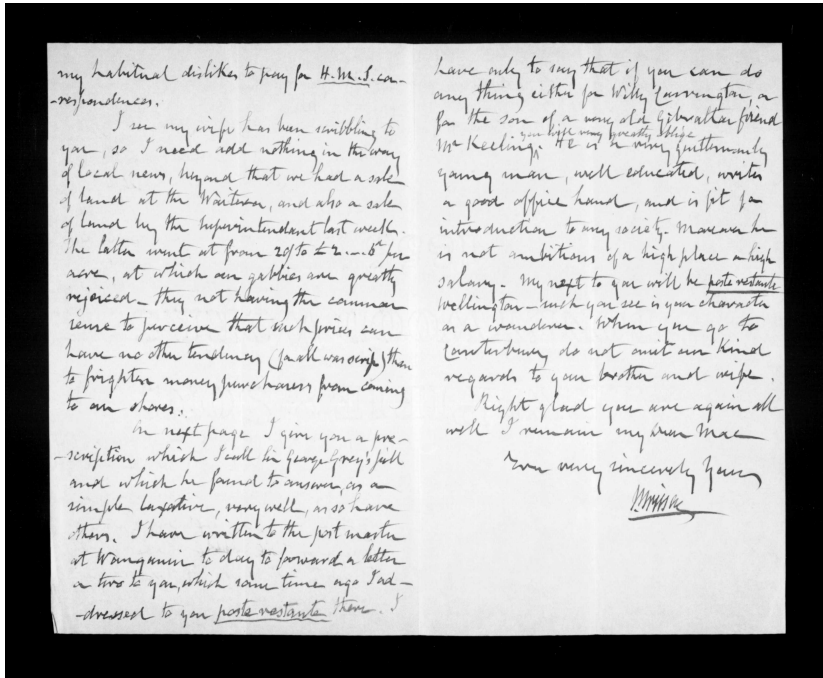 my habitual dislikes to pay for H.M.S. cor-
-respondences.
I see my wife has been scribbling to
you, so I need add nothing in the way
of local news, beyond that we had a sale
of land at the Waitera, and also a sale
of land by the Superintendant last week.
The latter went at from 20/ to £2 per
acre, at which our gabbies are greatly
rejoiced - they not having the common
sense to perceive that such prices can
have no other tendency (for all was scrip) than
to frighten money purchasers from coming
to our shores.
On next page I give you a pre-
-scription which I call Sir George Grey's pill
and which he found to answer, as a
simple laxative, very well, as so have
others. I have written to the post master
at Wanganui to day to forward a letter
or two to you, which some time ago I ad-
-dressed to you poste restante there. I
have only to say that if you can do
any thing either for Willy Carrington, or
for the son of a very old Gibraltar friend
you will very greatly oblige
Mr Keeling. He is a very gentlemanly
young man, well educated, writes
a good office hand, and is fit for
introduction to any society. Moreover he
is not ambitious of a high place or high
salary. My next to you will be poste restante
Wellington - such you see is your character
as a wanderer. When you go to
Canterbury do not omit our kind
regards to your brother and wife.
Right glad you are again all
well I remain my dear Mac
Ever very sincerely Yours